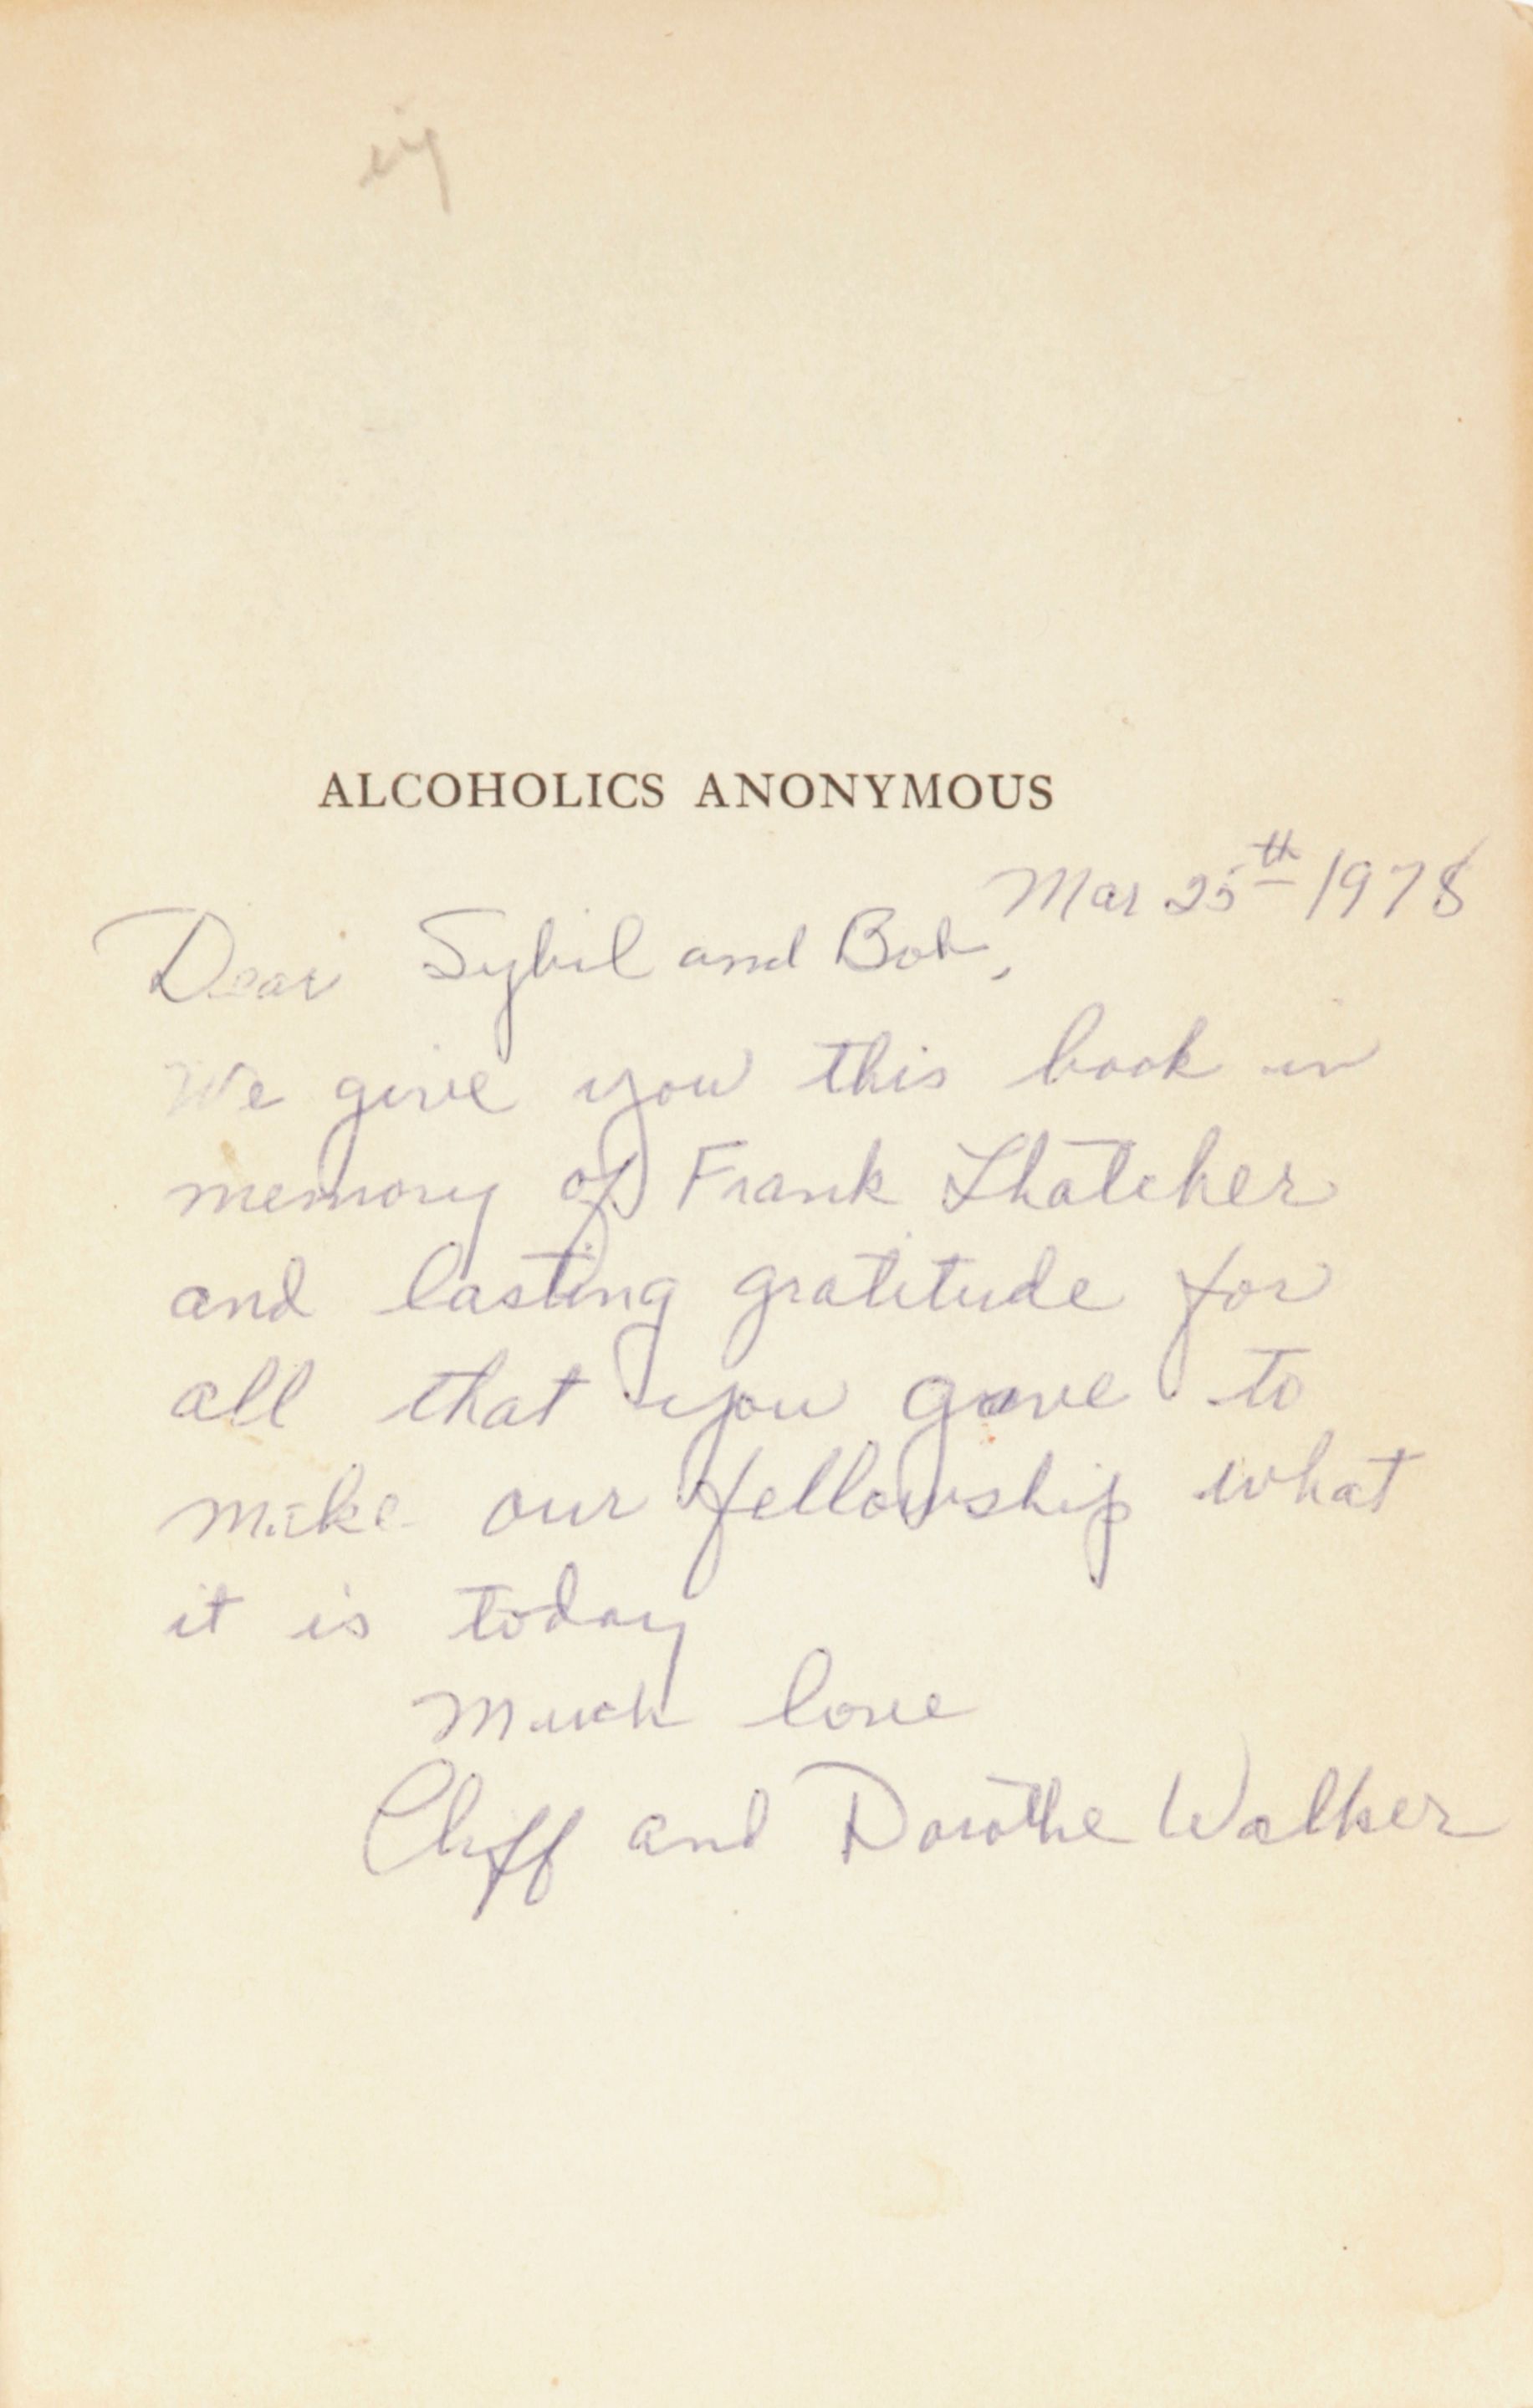 ALCOHOLICS ANONYMOUS
Mar 25th 1978
Dear Sybil and Bob,
We give you this book in
memory of Frank Thatcher
and lasting gratitude for
all that you gave to
make our fellowship what
it is today
Much love
Cliff and Dorothe Walker